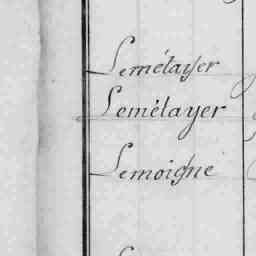 Lemétayer
Lemétayer
Lemoigne